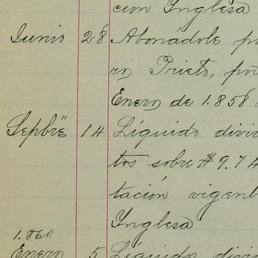 cion Inglesa
Junio 28 Abonádole po
ro Prieto, po
Enero de 1.858 á
Sepbre 14 Líquido divi
tos sobre # 9.74
tación vigent
Inglesa
1.860
Enero 5 Líquido divi